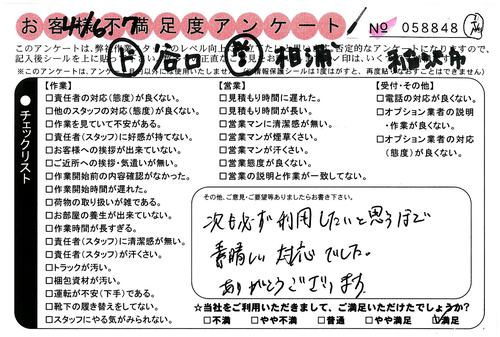 お客様不満足度アンケート
No 058848
このアンケートは、弊社作業スタッフのレベル向上
記入後シールを上に貼って
※このアンケートは、アンケート目的以外には使用いたしません。(個人情報保護シールは1度はがすと、再度貼りなおすことはできません)
谷口
相浦
チェックリスト
【作業】
□責任者の対応(態度)が良くない。
□他のスタッフの対応(態度)が良くない。
□作業を見ていて不安がある。
□責任者(スタッフ)に好感が持てない。
□お客様への挨拶が出来ていない。
□ご近所への挨拶・気遣いが無い。
□作業開始前の内容確認がなかった。
□作業開始時間が遅れた。
□荷物の取り扱いが雑である。
□お部屋の養生が出来ていない。
□作業時間が長すぎる。
□責任者(スタッフ)に清潔感が無い。
□責任者(スタッフ)が汗くさい。
□トラックが汚い。
□梱包資材が汚い。
□運転が不安(下手)である。
□靴下の履き替えをしてない。
□スタッフにやる気がみられない。
【営業】
□見積もり時間に遅れた。
□見積もり時間が長い。
□営業マンに清潔感が無い。
□営業マンが煙草くさい。
□営業マンが汗くさい。
□営業態度が良くない。
□営業の説明と作業が一致してない。
【受付・その他】
□電話の対応が良くない。
□オプション業者の説明
・作業が良くない。
□オプション業者の対応
(態度)が良くない。
その他、ご意見・ご要望等ありましたらお書き下さい。
次も必ず利用したいと思うほど
素晴しい対応でした。
ありがとうございます。
☆当社をご利用いただきまして、ご満足いただけたでしょうか?
□不満 □やや不満 □普通 □やや満足 ☑満足